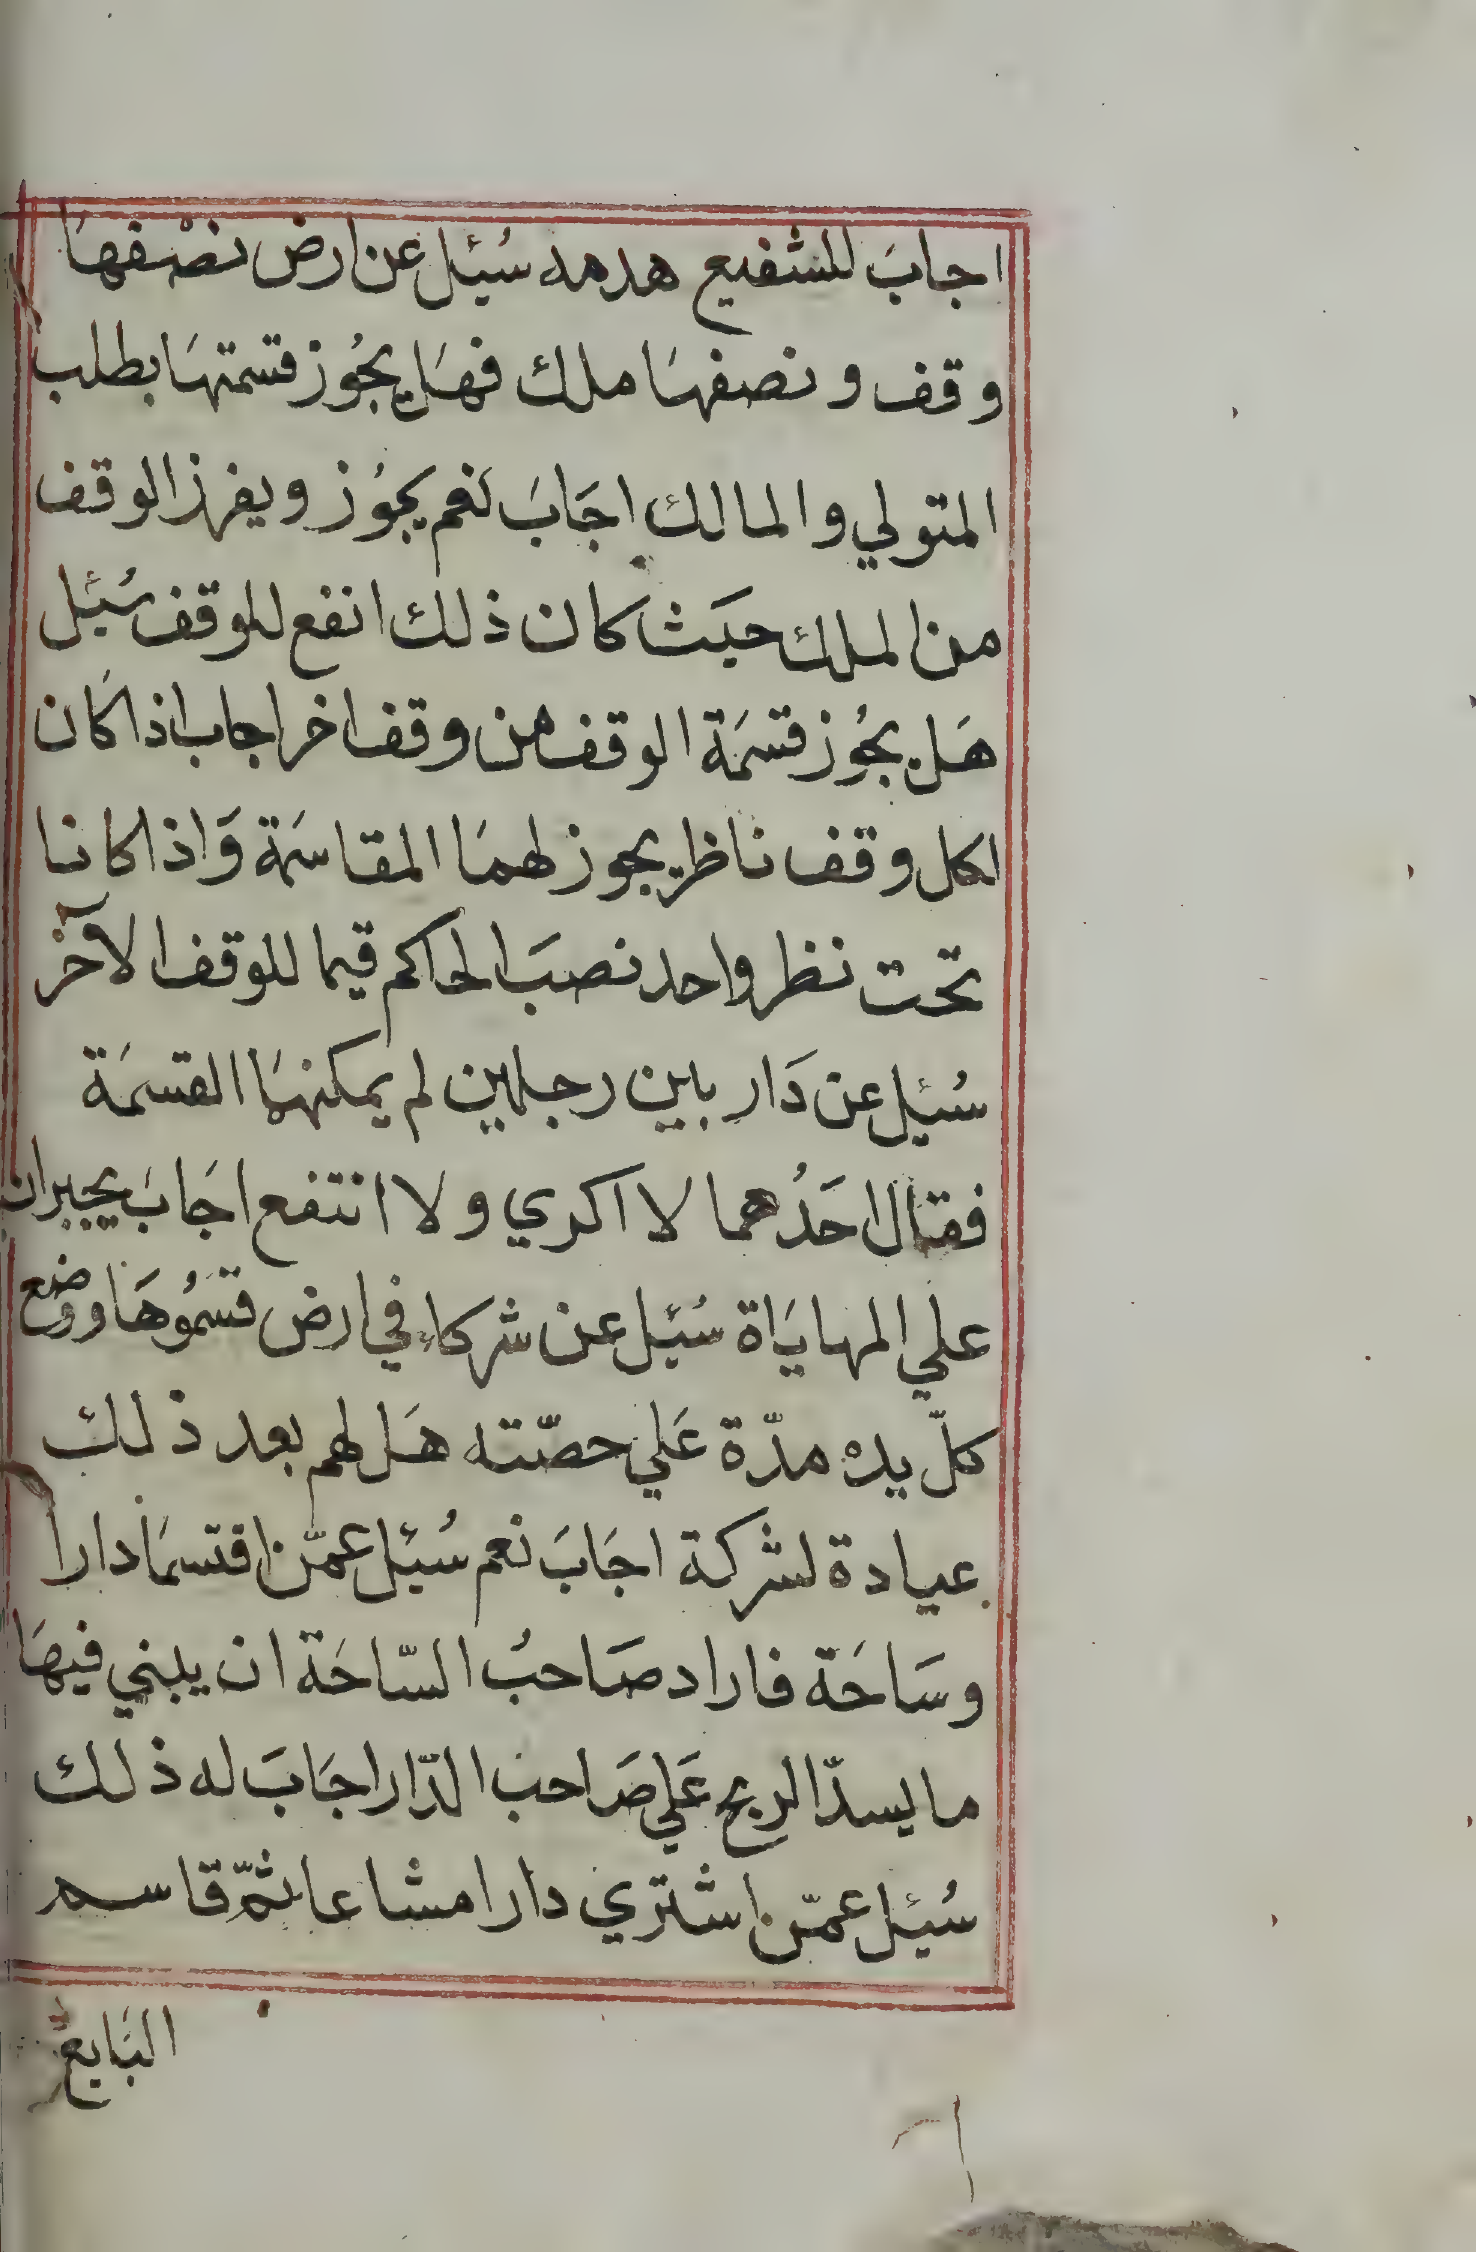 اجابَ للشفيع هدمه سُئل عن ارض نصْفهَا
وقف ونصفهَا ملك فهَل يجُوز قسمتهَا بطلب
المتولي والمالك اجَابَ نَعم يجوُز ويفرز الوقف
من الملك حيَث كان ذلك انفع للوقف سُئل
هَل يجُوز قسمَة الوقف من وقف اخر اجاب اذا كَان
لكل وقف ناظر يجوز لهمَا المقاسمَة وَاذا كانا
تحت نظر واحد نصبَ الحاكم قيما للوقف الآخْر
سُئل عن دَار بين رجلين لم يمكنهمَا القسمَة
فقال احَدُهما لا اكري ولا انتفع اجَابَ يجبران
علي المهايَاة سُئل عن شركاء في ارض قسَمُوهَا ووضع
كلّ يده مدّة عَلي حصّته هَل لهم بعد ذلك
عيادة لشركة اجَابَ نعم سُئل عمّن اقتسمَا دارا
وسَاحَة فاراد صَاحبُ السّاحَة ان يبني فيهَا
ما يسدّ الريح عَلي صَاحب الدّار اجَابَ له ذلك
سُئل عمّن اشتري دارا مشاعا ثمّ قاسم
البَايع